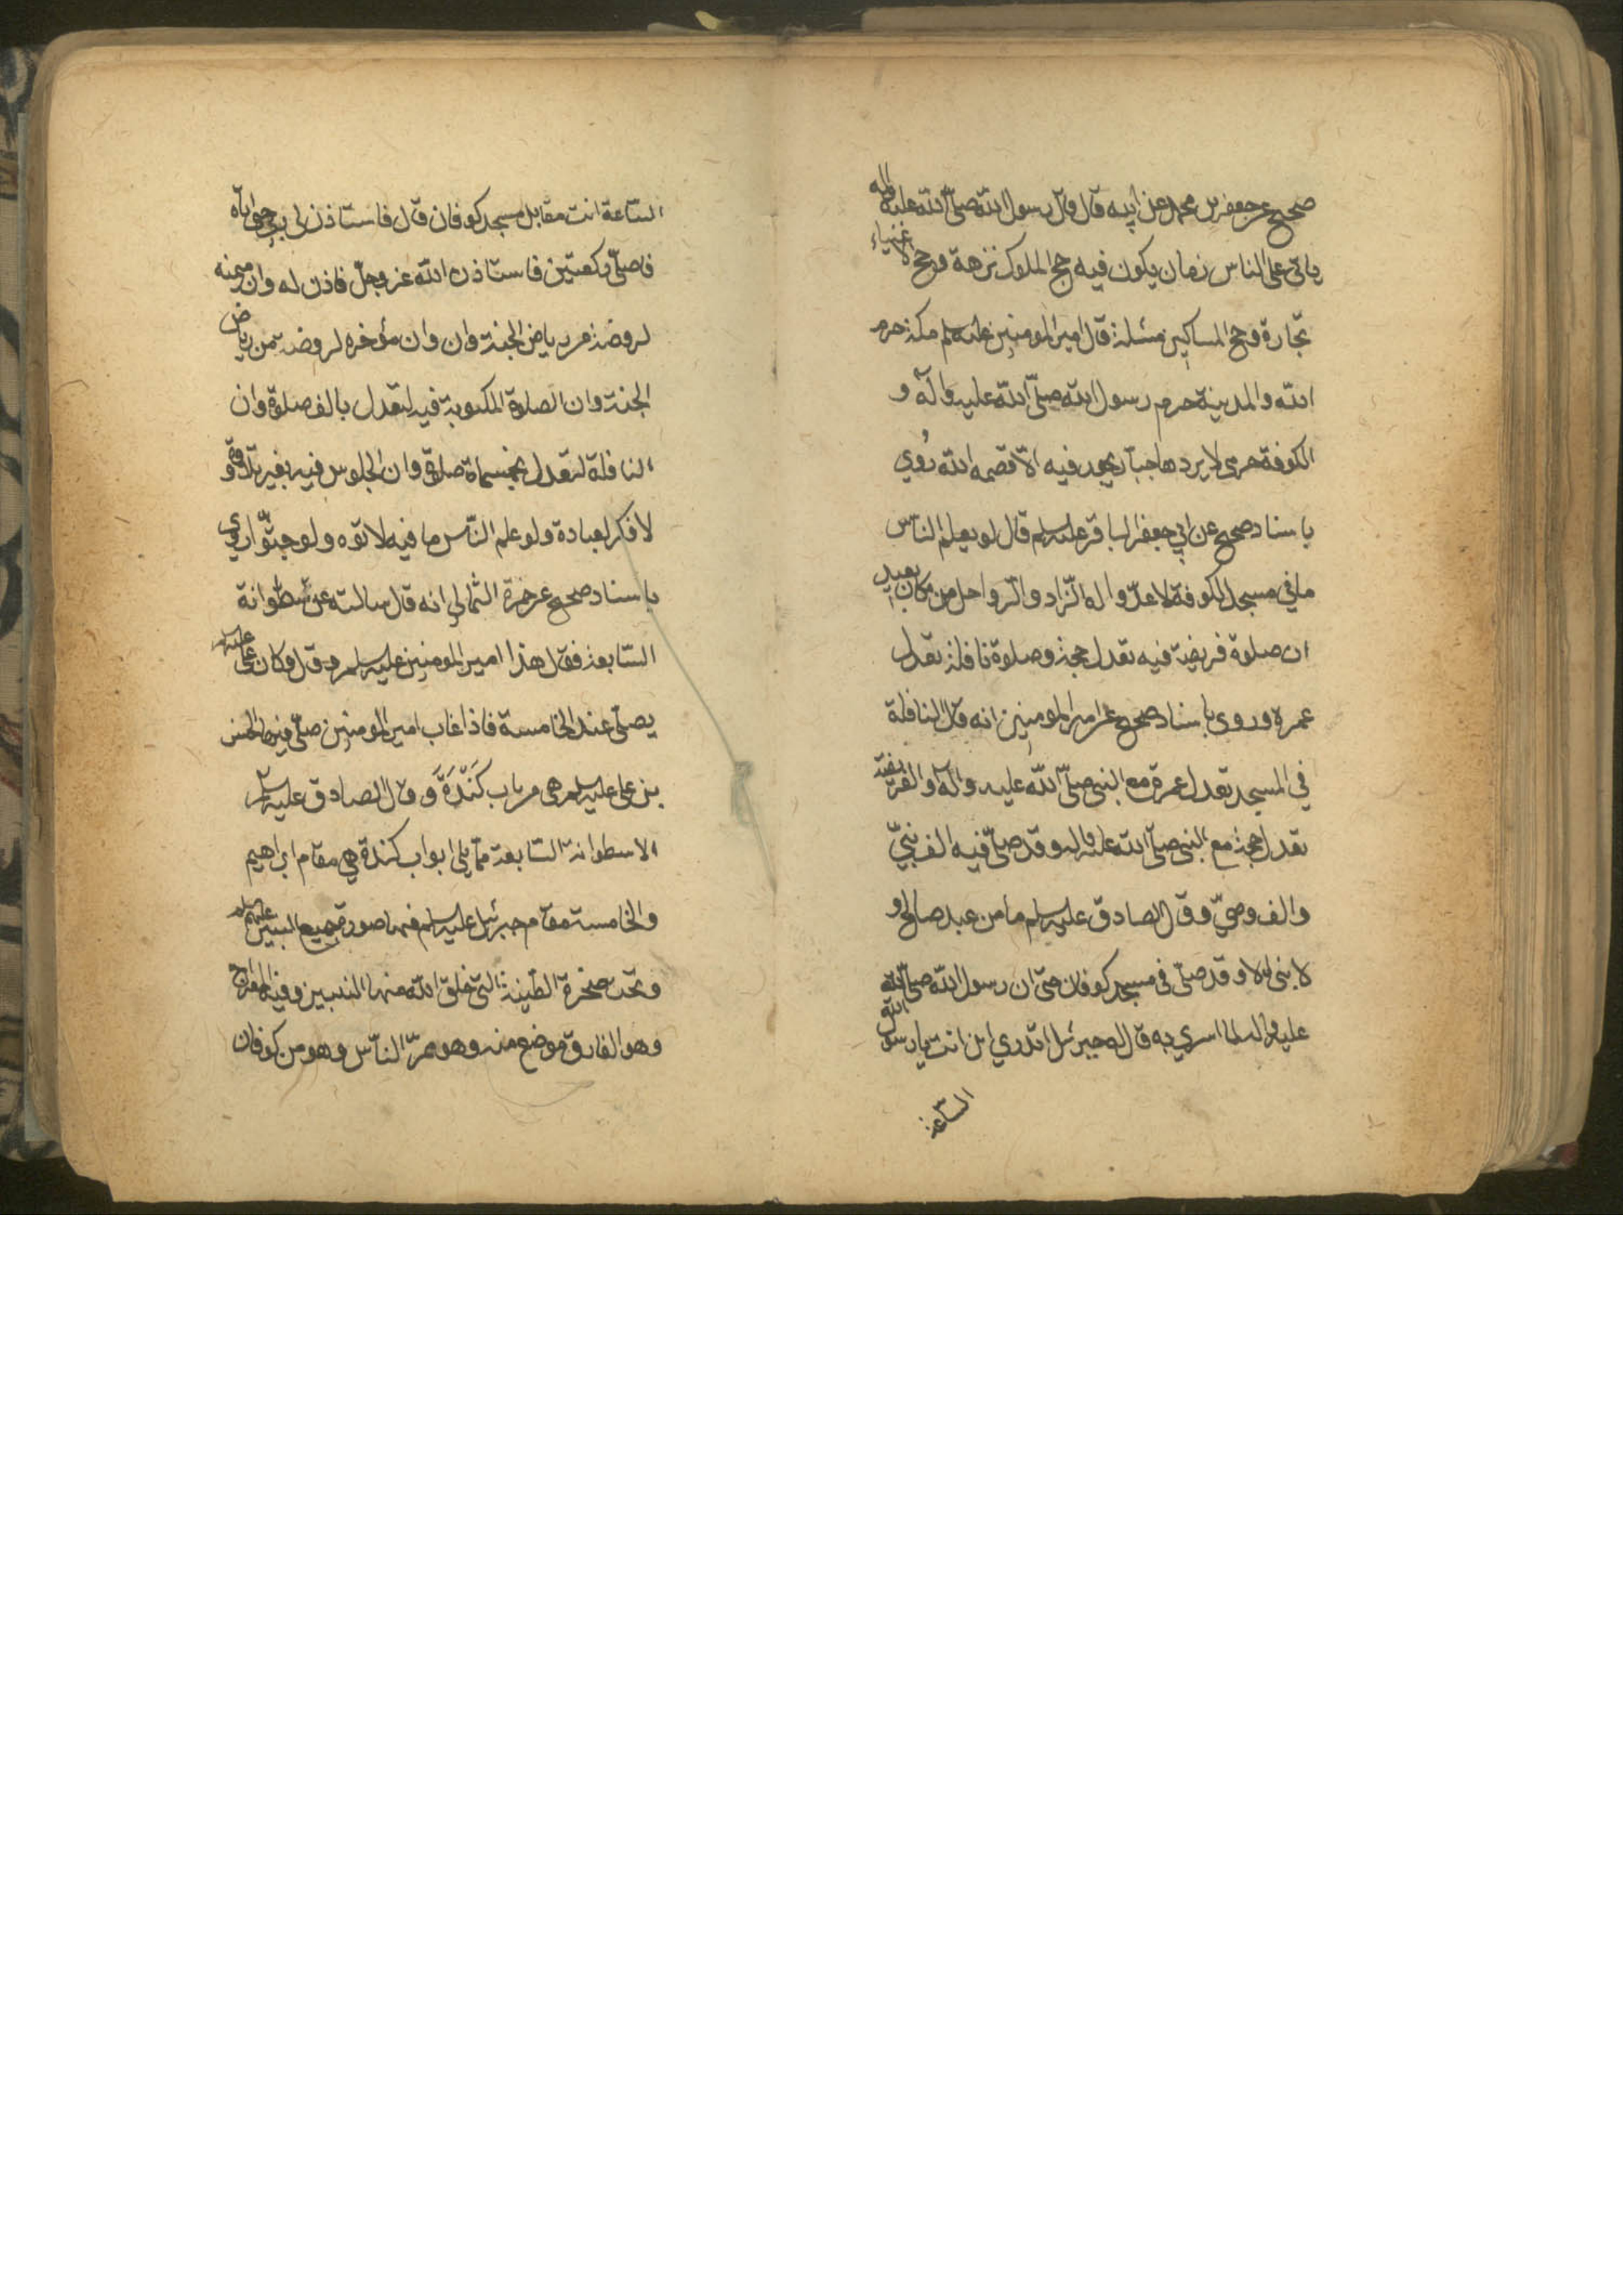 صحيح عن جعفر بن محمد عن ابيه قال قال رسول الله صلّى الله عليه واله
ياتي على الناس زمان يكون فيه حج الملوك نزهة وحج الاغنياء
تجارة وحج المساكين مسئلة قال امير المومنين عليه سلم مكة حرم
الله والمدينة حرم رسول الله صلّى الله عليه وآله و
الكوفة حرمى لا يردها جبار يحدث فيه الاّ قصمه الله روي
باسناد صحيح عن ابي جعفر الباقر عليه سلم قال لو يعلم الناس
ما في مسجد الكوفة لاعدّوا له الزّاد والرّواحل من مكان بعيد
ان صلوة فريضة فيه تعدل حجة وصلوة نافلة تعدل
عمرة وروى باسناد صحيح عن امير المومنين انه قال النافلة
في المسجد تعدل عمرة مع النبي صلّى الله عليه وآله والفريضة
تعدل حجة مع النبي صلّى الله عليه واله وقد صلّى فيه الف نبيّ
والف وصيّ وقال الصادق عليه سلم ما من عبد صالح و
لا نبى الا وقد صلّى في مسجد كوفان حتى ان رسول الله صلّى الله
عليه واله لما اسري به قال له جبرئيل اتدري اين انت يا رسول الله
السّاعة
السّاعة انت مقابل مسجد كوفان قال فاستاذن لي ربي حتى اتاه
فاصلّي ركعتين فاستاذن الله عز وجلّ فاذن له وان ميمنه
لروضة من رياض الجنة وان وان مؤخره لروضة من رياض
الجنة وان الصلوة المكتوبة فيه لتعدل بالف صلوة وان
النافلة لتعدل بخمسماة صلوة وان الجلوس فيه بغير تلاوة و
لا ذكر لعبادة ولو علم النّاس ما فيه لاتوه ولو حبوّا روي
باسناد صحيح عن حمزة الثمالي انه قال سالته عن اسطوانة
السّابعة فقال هذا امير المومنين عليه سلم وقال وكان على عليه سلم
يصلّي عند الخامسة فاذا غاب امير المومنين صلّى فيها الحسن
بن على عليه سلم هى من باب كندة وقال الصادق عليه سلم
الاسطوانة السّابعة ممّا يلي ابواب كندة هي مقام ابراهيم
والخامسة مقام جبرئيل عليه سلم فيها صورة جميع النبيين عليهم سلم
وتحت صخرة الطّينة التي خلق الله منها النبيين وفيه المعراج
وهو الفاروق موضع منه وهو ممرّ النّاس وهو من كوفان